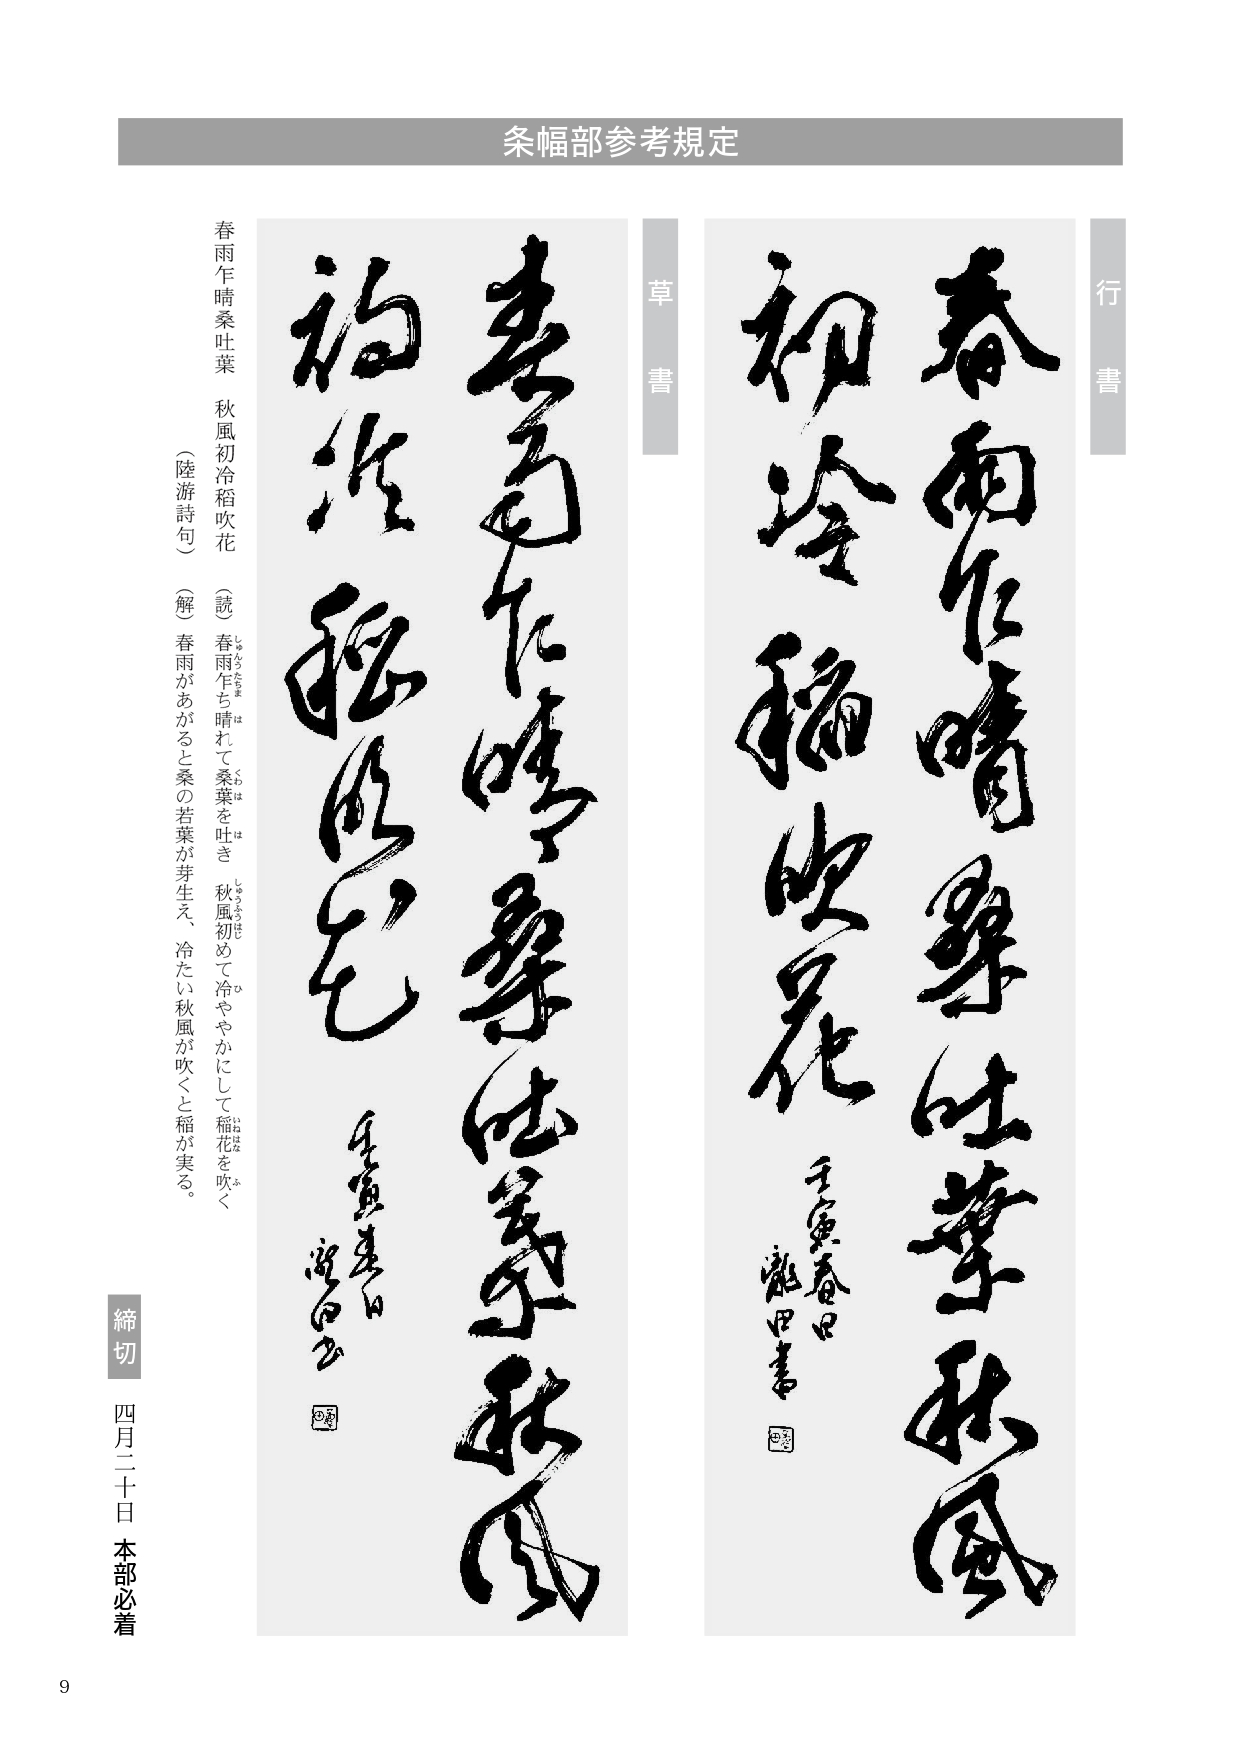 条幅部参考規定
行書
春雨乍晴桑吐葉秋風
初冷稲吹花
壬寅春日
龍田書
草書
春雨乍晴桑吐葉秋風
初冷稲吹花
壬寅春日
龍田書
春雨乍晴桑吐葉　秋風初冷稲吹花
（陸游詩句）
（読）春雨乍ち晴れて桑葉を吐き　秋風初めて冷ややかにして稲花を吹く
しゅんうたちま は くわ は は しゅうふうはじ ひ いねはな ふ
（解）春雨があがると桑の若葉が芽生え、冷たい秋風が吹くと稲が実る。
締切　四月二十日　本部必着
9